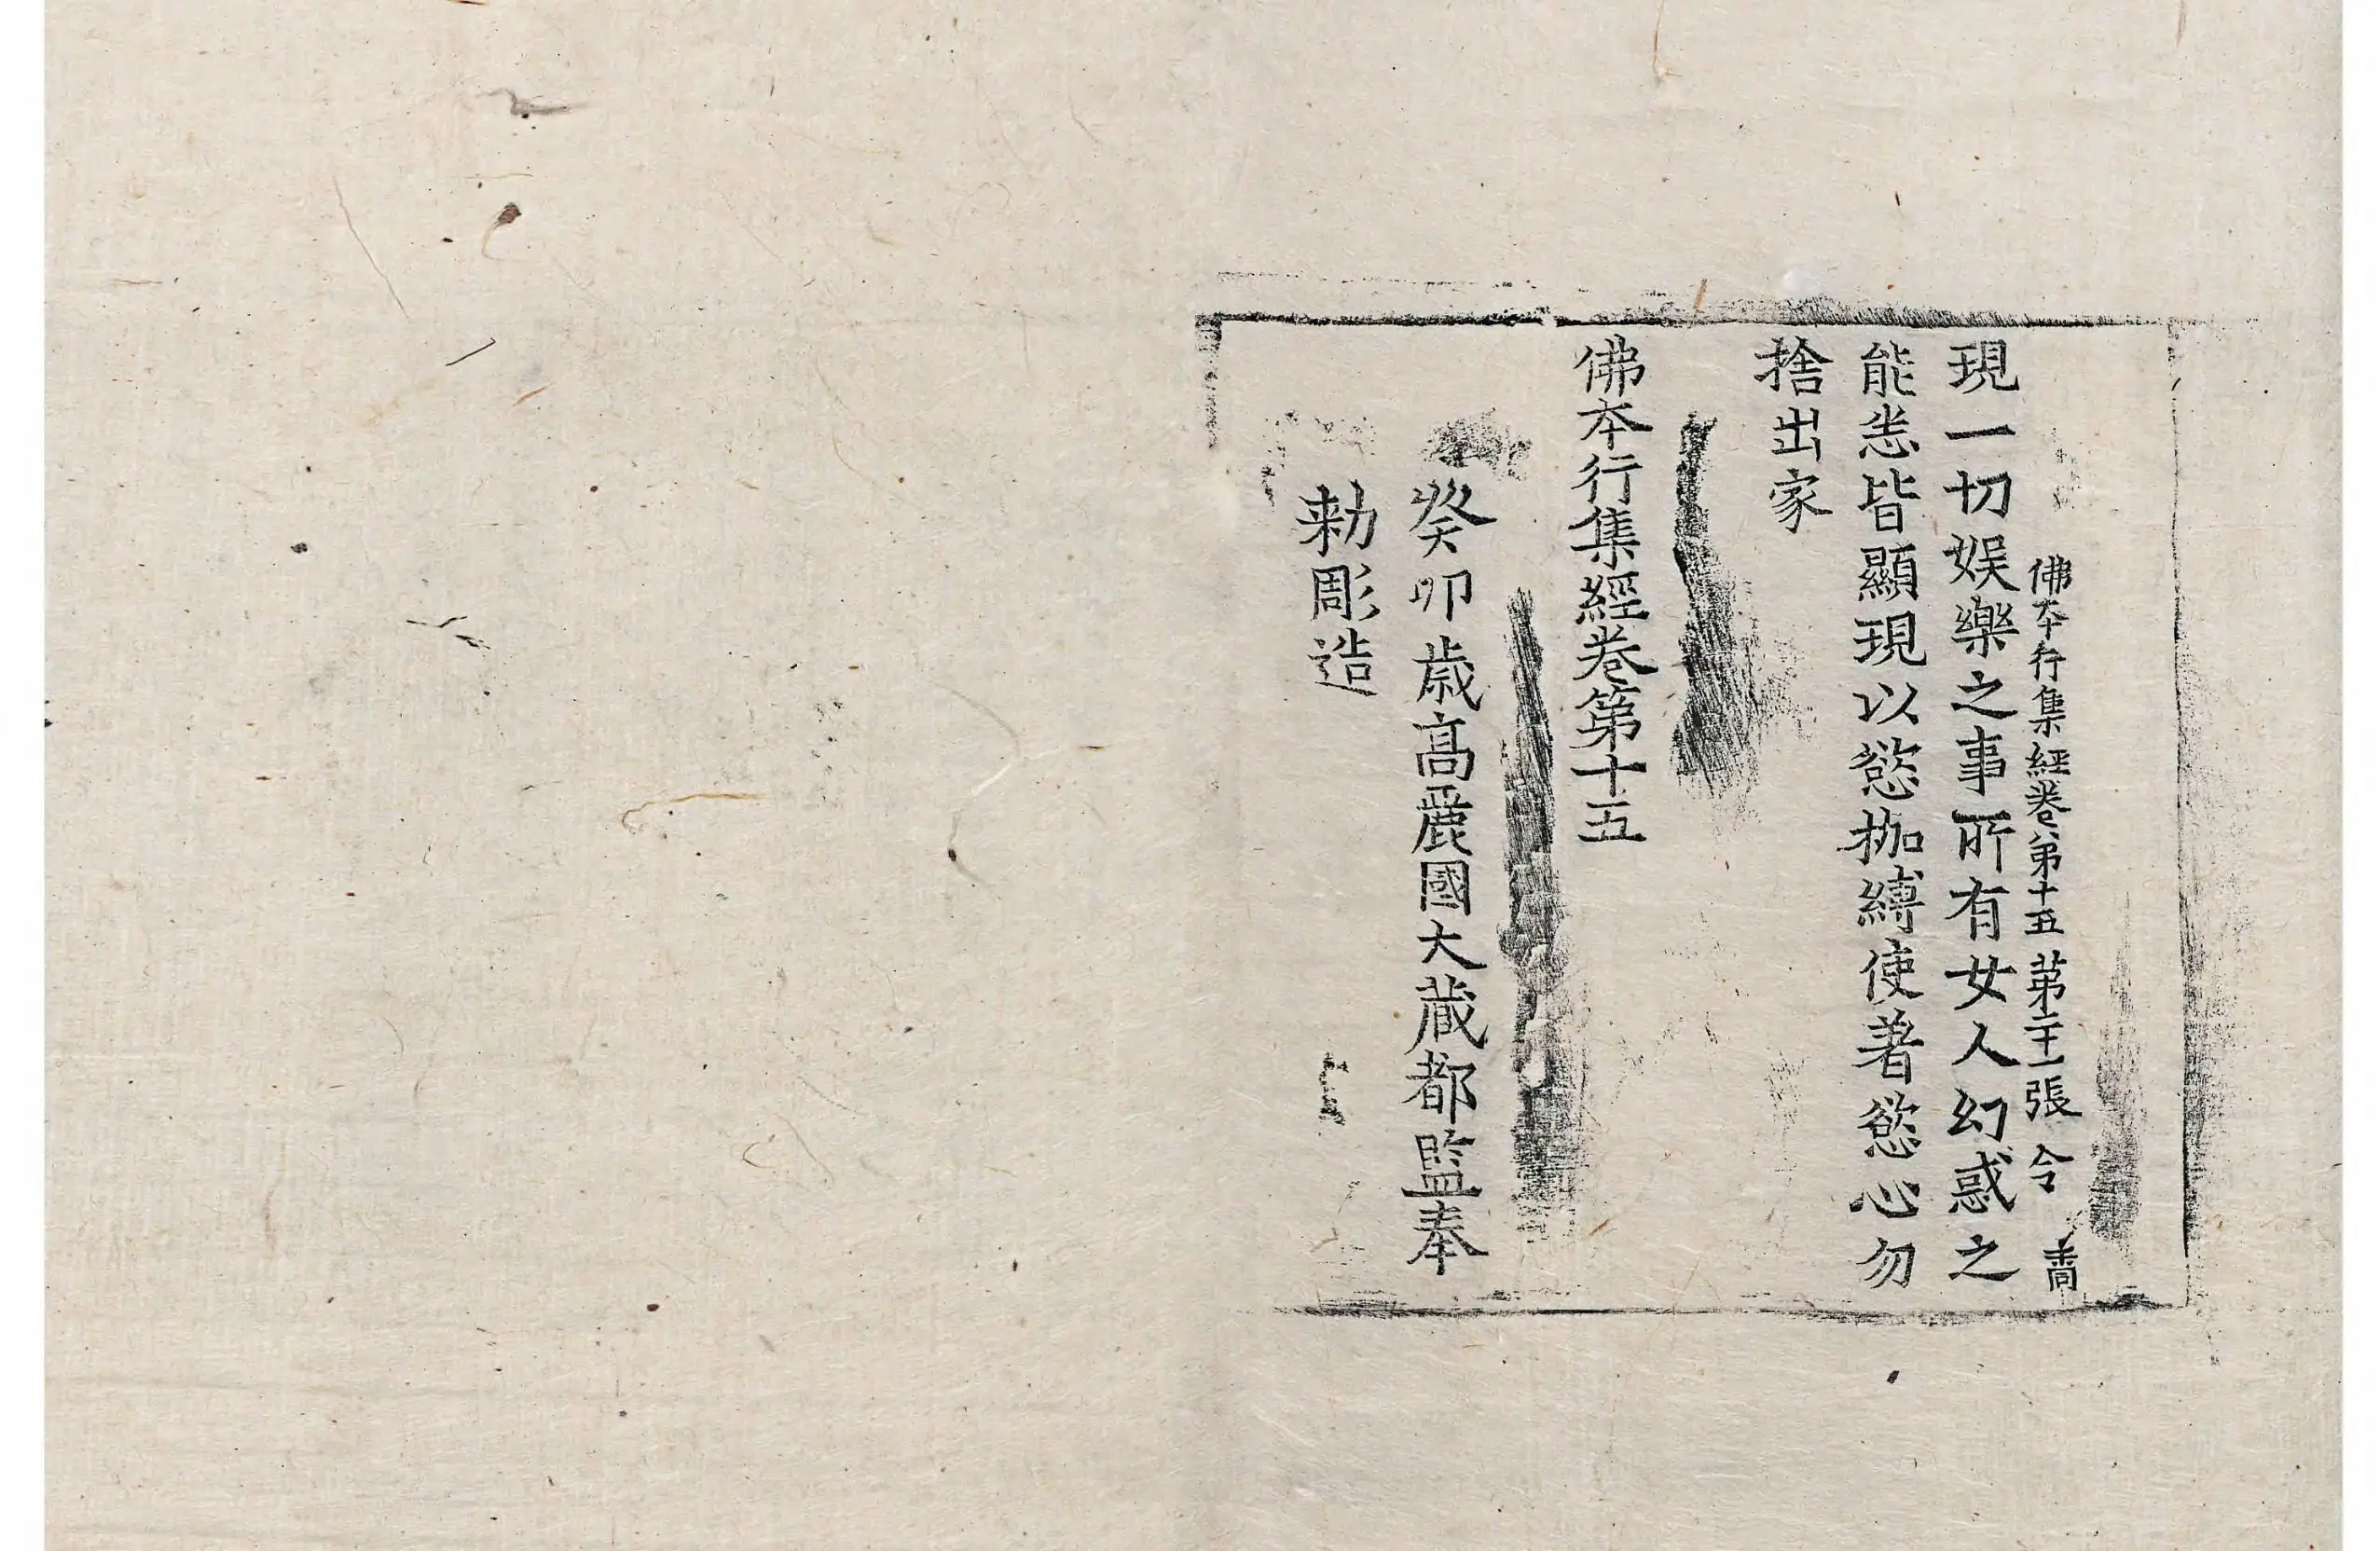 佛本行集經卷第十五 第二十一張 令
現一切娱樂之事所有女人幻惑之
能恙皆顯現以慾枷縛使著慾心勿
捨出家
佛本行集經卷第十五
癸卯歳高麗國大藏都監奉
勅彫造